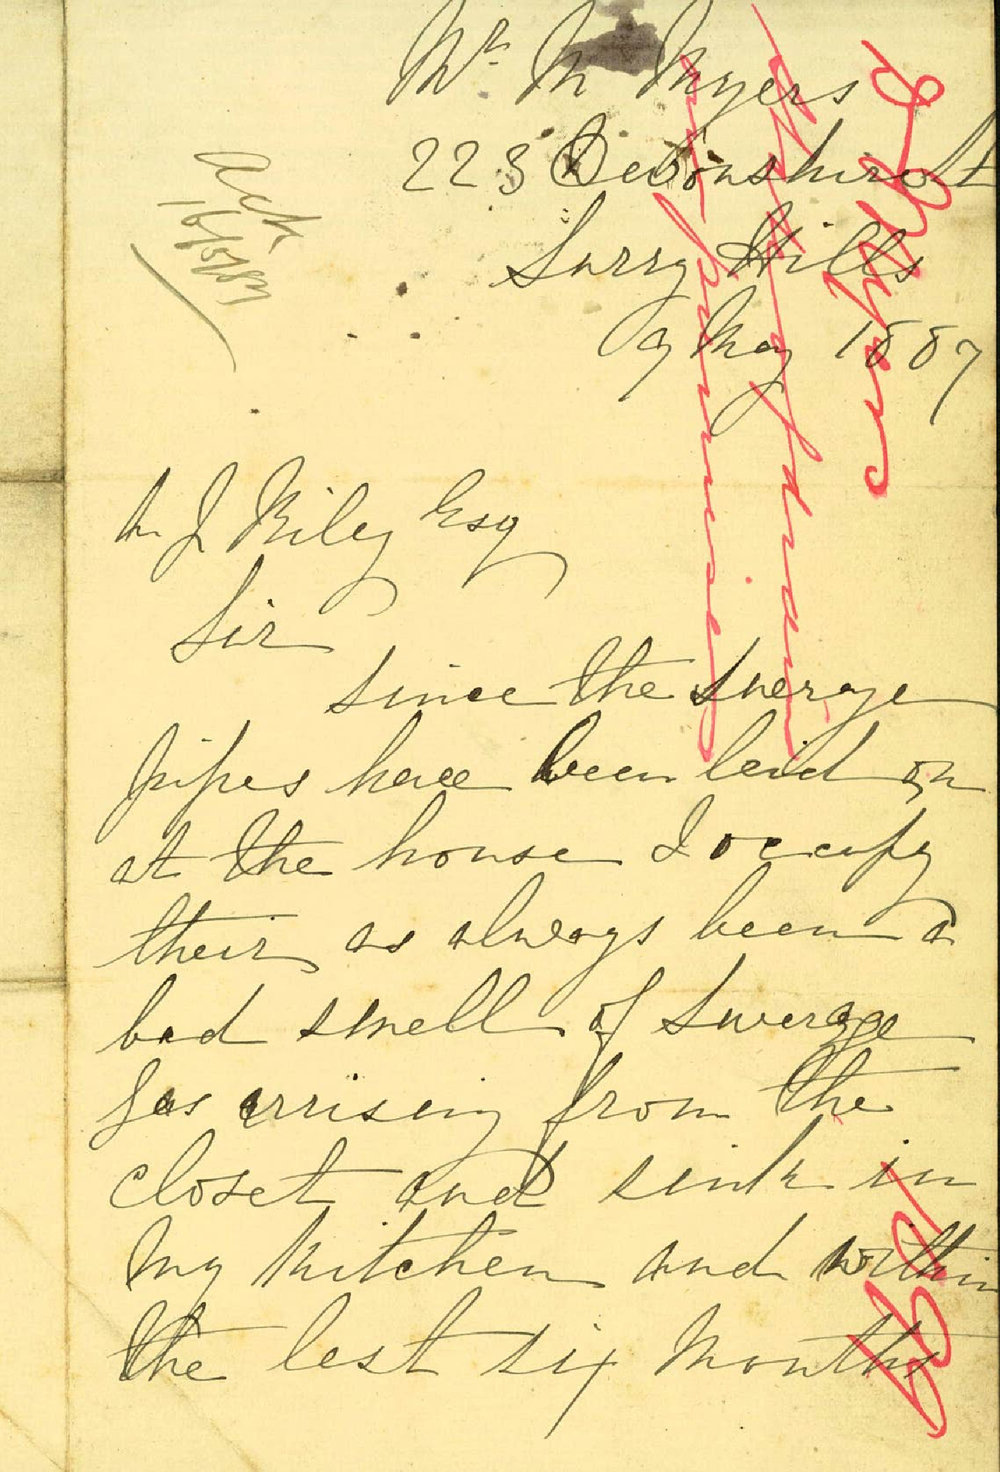 Mr. M Myers
223 Devonshire St
Surry Hills
9 May 1887
Ack
16/5/87
A J Riley Esq
Sir
Since the Swerage
pipes have been laid on
at the house I occupy
their as always been a
bad smell of Swerage
Gas arrising from the
closet and sink in
My Kitchen and within
the last six Months
Myers